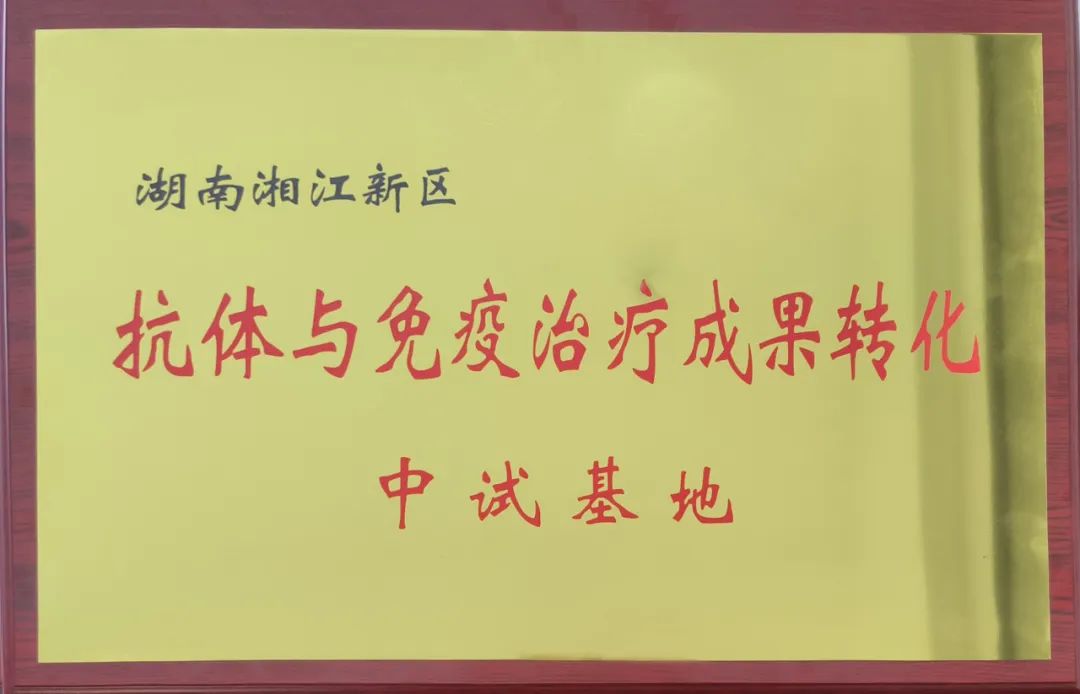 湖南湘江新区
抗体与免疫治疗成果转化
中试基地